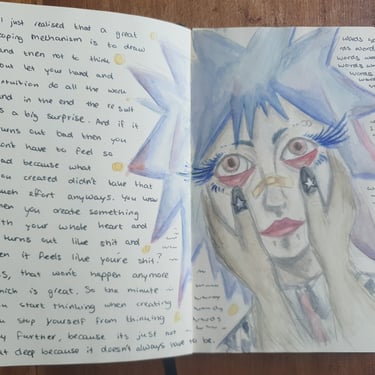 I just realised that a great
coping mechanism is to draw
and then not to think
but let your hand and
intuition do all the work
and in the end the result
is a big surprise. And if it
turns out bad then you
won't have to feel so
bad because what
you created didn't take that
much effort anyways. You know
when you create something
with your whole heart and
it turns out like shit and
then it feels like you're shit?
that won't happen anymore
which is great. So the minute
you start thinking when creating
you stop yourself from thinking
any further, because its just not
that deep because it doesn't always have to be.
words so
no words
words wor
words wo
words w
words
words
words